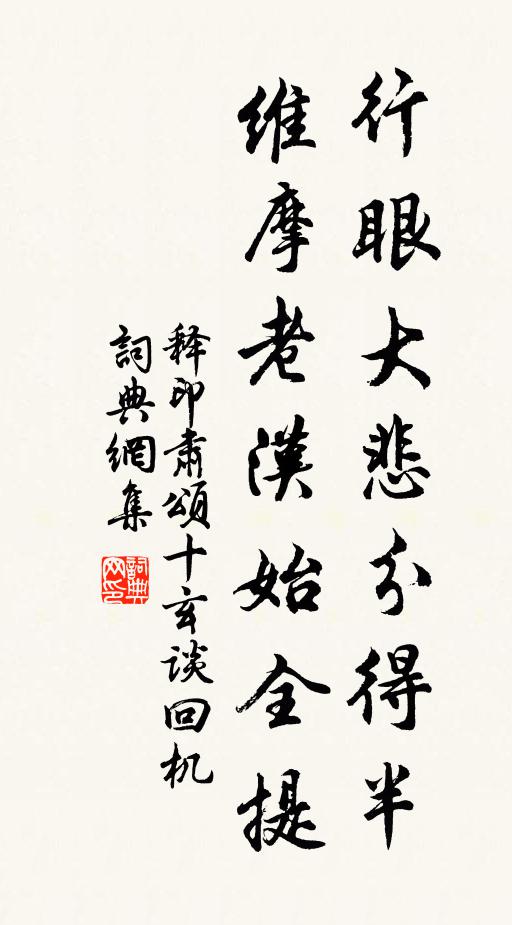 行眼大悲分得半
維摩老漢始全提
释印肅頌十玄談回机
詞典網集
詞典网印